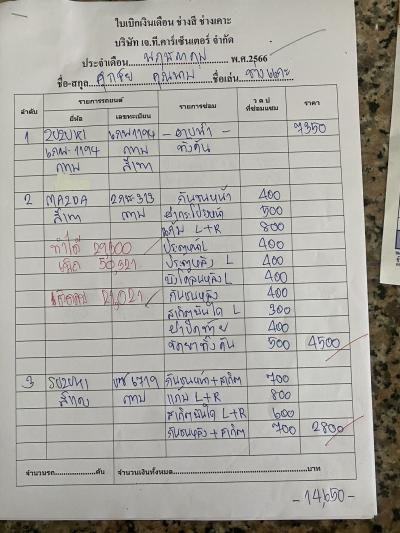 ใบเบิกเงินเดือน ช่างสี ช่างเคาะ
บริษัท เจ.ที.คาร์เซ็นเตอร์ จำกัด
ประจำเดือน พฤษภาคม พ.ศ.2566
ชื่อ-สกุล ชื่อเล่น ช่างเคาะ
ลำดับ รายการรถยนต์ รายการซ่อม ว ด ป ที่ซ่อมแซม ราคา
ยี่ห้อ เลขทะเบียน
1 SUZUKI 1194 - อาบน้ำ - 7350
1194 กทม ทั้งคัน
กทม สีเทา
2 MAZDA 313 กันชนหน้า 400
สีเทา กทม ฝากระโปรงหน้า 500
แก้ม L+R 800
ทำได้ 29,100 ประตูหน้า L 400
ประตูหลัง L 400
บังโคลนหลัง L 400
กันชนหลัง 400
สเกิตบันได L 300
ฝาปิดท้าย 400
ขัดยาทั้งคัน 500 4500
3 SUZUKI 6719 กันชนหน้า+สเกิต 700
กทม แก้ม L+R 800
สเกิตบันได L+R 600
กันชนหลัง+สเกิต 700 2800
จำนวนรถ....................คัน จำนวนเงินทั้งหมด....................บาท
- 14,650 -